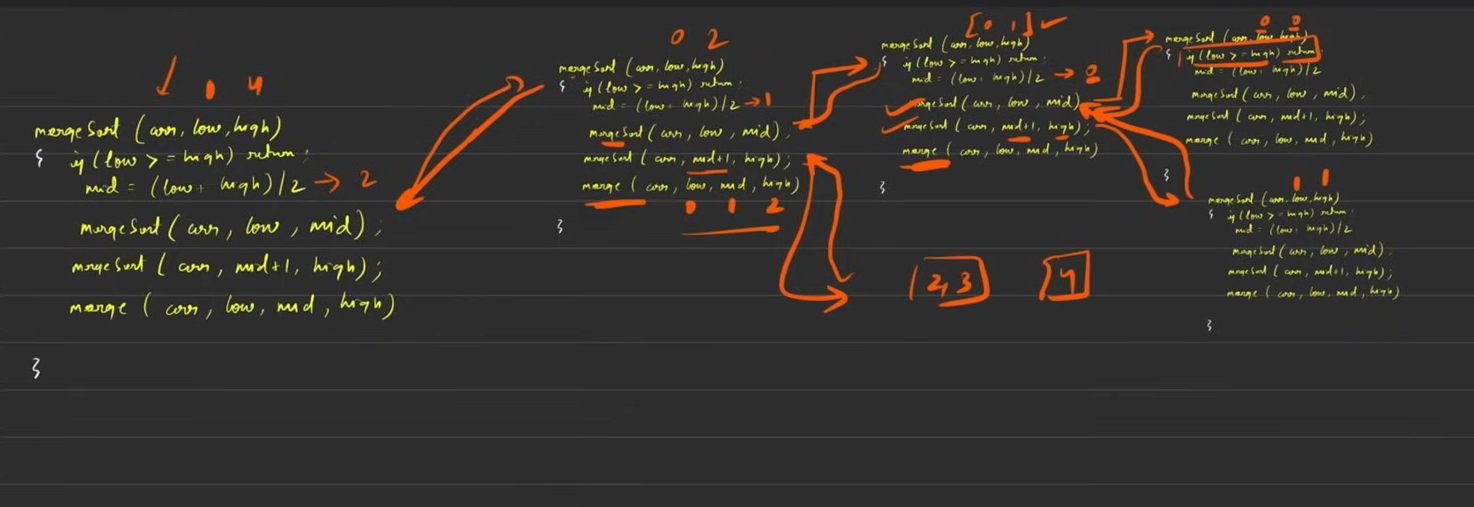 0 4
mergeSort (arr, low, high)
{ if (low >= high) return;
mid = (low + high)/2 → 2
mergeSort (arr, low, mid);
mergeSort (arr, mid+1, high);
merge (arr, low, mid, high)
}
0 2
mergeSort (arr, low, high)
{ if (low >= high) return;
mid = (low + high)/2 → 1
mergeSort (arr, low, mid);
mergeSort (arr, mid+1, high);
merge (arr, low, mid, high)
0 1 2
}
[0 1] ✓
mergeSort (arr, low, high)
{ if (low >= high) return;
mid = (low + high)/2 → 0
mergeSort (arr, low, mid)
mergeSort (arr, mid+1, high);
merge (arr, low, mid, high)
}
2,3
4
0 0
mergeSort (arr, low, high)
{ if (low >= high) return;
mid = (low + high)/2
mergeSort (arr, low, mid);
mergeSort (arr, mid+1, high);
merge (arr, low, mid, high)
}
1 1
mergeSort (arr, low, high)
{ if (low >= high) return;
mid = (low + high)/2
mergeSort (arr, low, mid);
mergeSort (arr, mid+1, high);
merge (arr, low, mid, high)
}